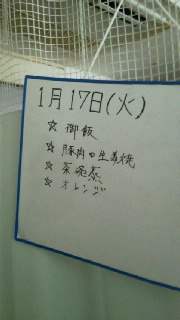 1月17日(火)
☆御飯
☆豚肉の生姜焼
☆茶碗蒸
☆オレンジ